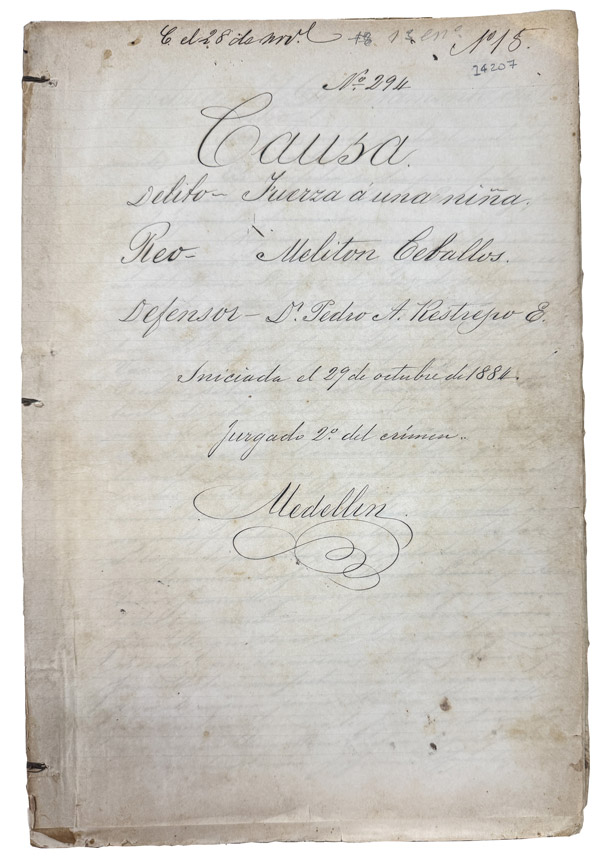 C el 28 de nov.e 13 en.o Nº 15.
14207
Nº 294
Causa.
Delito- Fuerza á una niña.
Reo- Meliton Ceballos.
Defensor- Dr. Pedro A. Restrepo E.
Iniciada el 29 de octubre de 1884.
Juzgado 2.º del crímen.
Medellin.